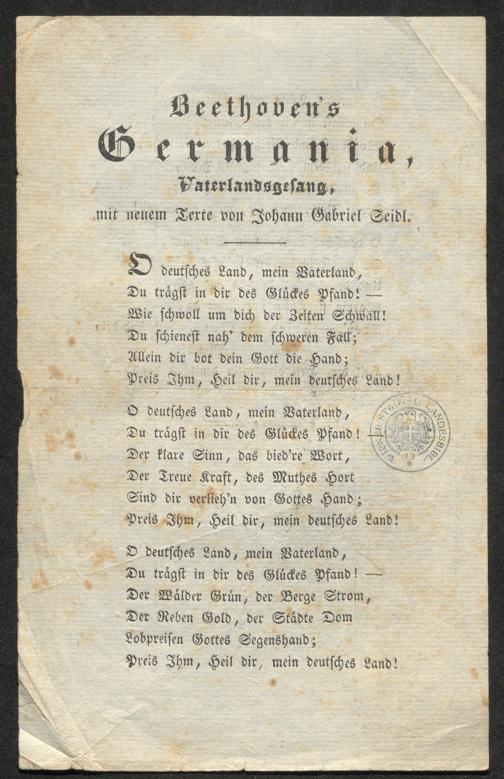 Beethoven's
Germania,
Vaterlandsgesang,
mit neuem Texte von Johann Gabriel Seidl.
O deutsches Land, mein Vaterland,
Du trägst in dir des Glückes Pfand! —
Wie schwoll um dich der Zeiten Schwall!
Du schienest nah' dem schweren Fall;
Allein dir bot dein Gott die Hand;
Preis Ihm, Heil dir, mein deutsches Land!
O deutsches Land, mein Vaterland,
Du trägst in dir des Glückes Pfand! —
Der klare Sinn, das bied're Wort,
Der Treue Kraft, des Muthes Hort
Sind dir verlieh'n von Gottes Hand;
Preis Ihm, Heil dir, mein deutsches Land!
O deutsches Land, mein Vaterland,
Du trägst in dir des Glückes Pfand! —
Der Wälder Grün, der Berge Strom,
Der Reben Gold, der Städte Dom
Lobpreisen Gottes Segenshand;
Preis Ihm, Heil dir, mein deutsches Land!